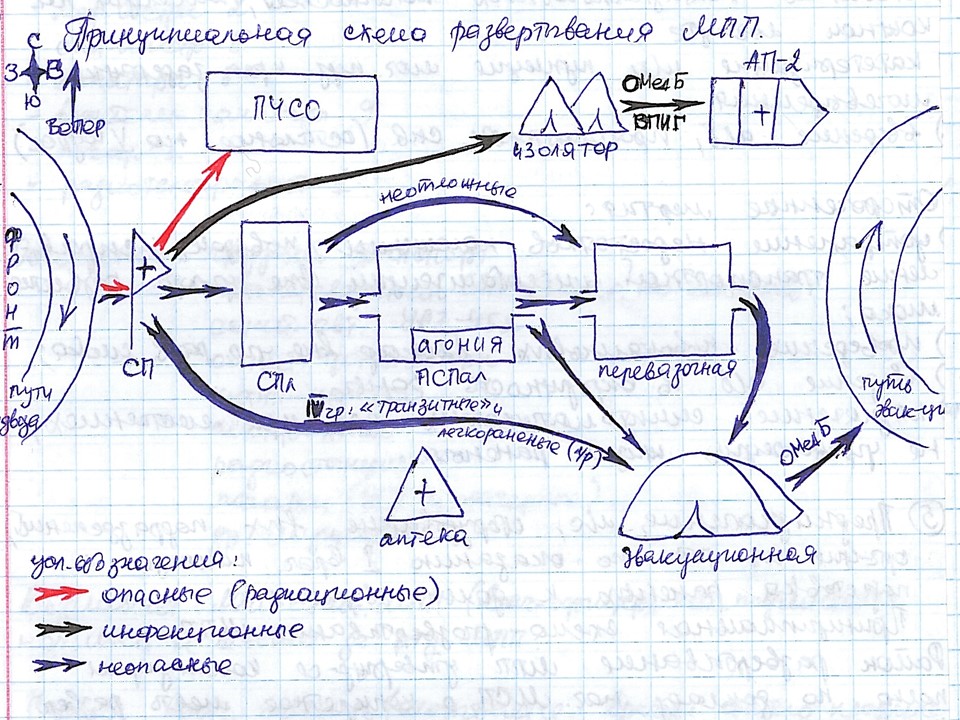 Принципиальная схема развертывания МПП.
С
З В
Ю
Ветер
ПЧСО
ОМедБ
ВПИГ
АП-2
изолятор
неотложные
ФРОНТ
СП
СПл
агония
ПСПал
перевязочная
пути
пути
эвак-ции
IV гр: «транзитные» и
легкораненые (
ОМедБ
аптека
эвакуационная
усл. обозначения:
опасные (радиационные)
инфекционные
неопасные